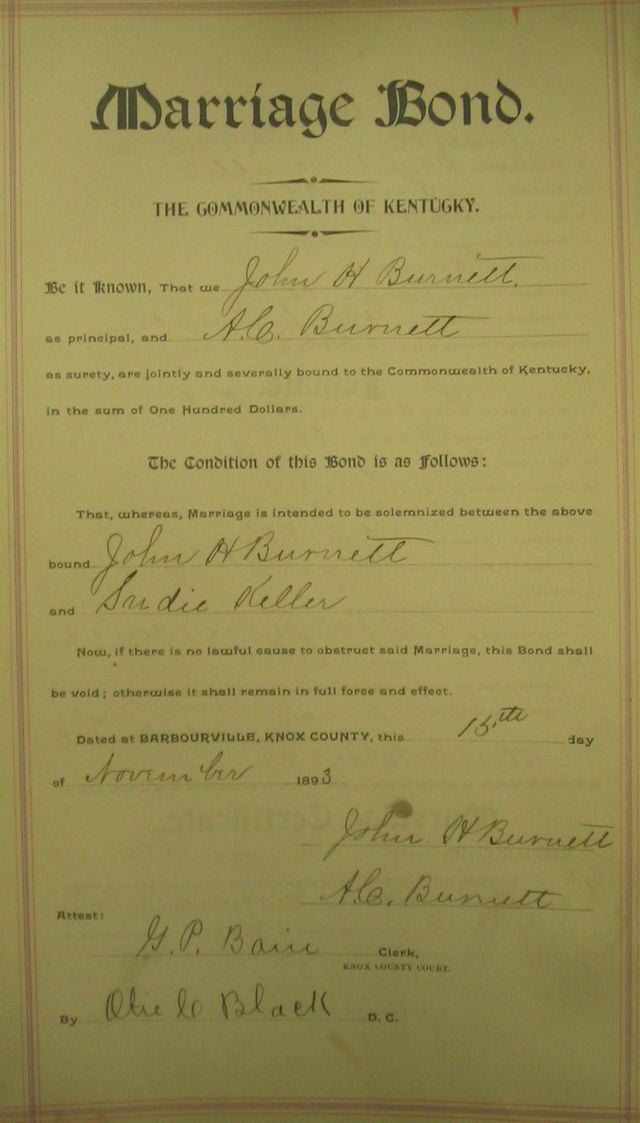 Marriage Bond.
THE COMMONWEALTH OF KENTUCKY.
Be it Known, That we John H Burnett.
as principal, and A.C. Burnett
as surety, are jointly and severally bound to the Commonwealth of Kentucky,
in the sum of One Hundred Dollars.
The Condition of this Bond is as Follows:
That, whereas, Marriage is intended to be solemnized between the above
bound John H Burnett
and Sudie Keller
Now, if there is no lawful cause to obstruct said Marriage, this Bond shall
be void; otherwise it shall remain in full force and effect.
Dated at BARBOURVILLE, KNOX COUNTY, this 15th day
of November 1893
John H Burnett
A.C. Burnett
Attest:
G. P. Clerk,
KNOX COUNTY COURT.
By Black D. C.